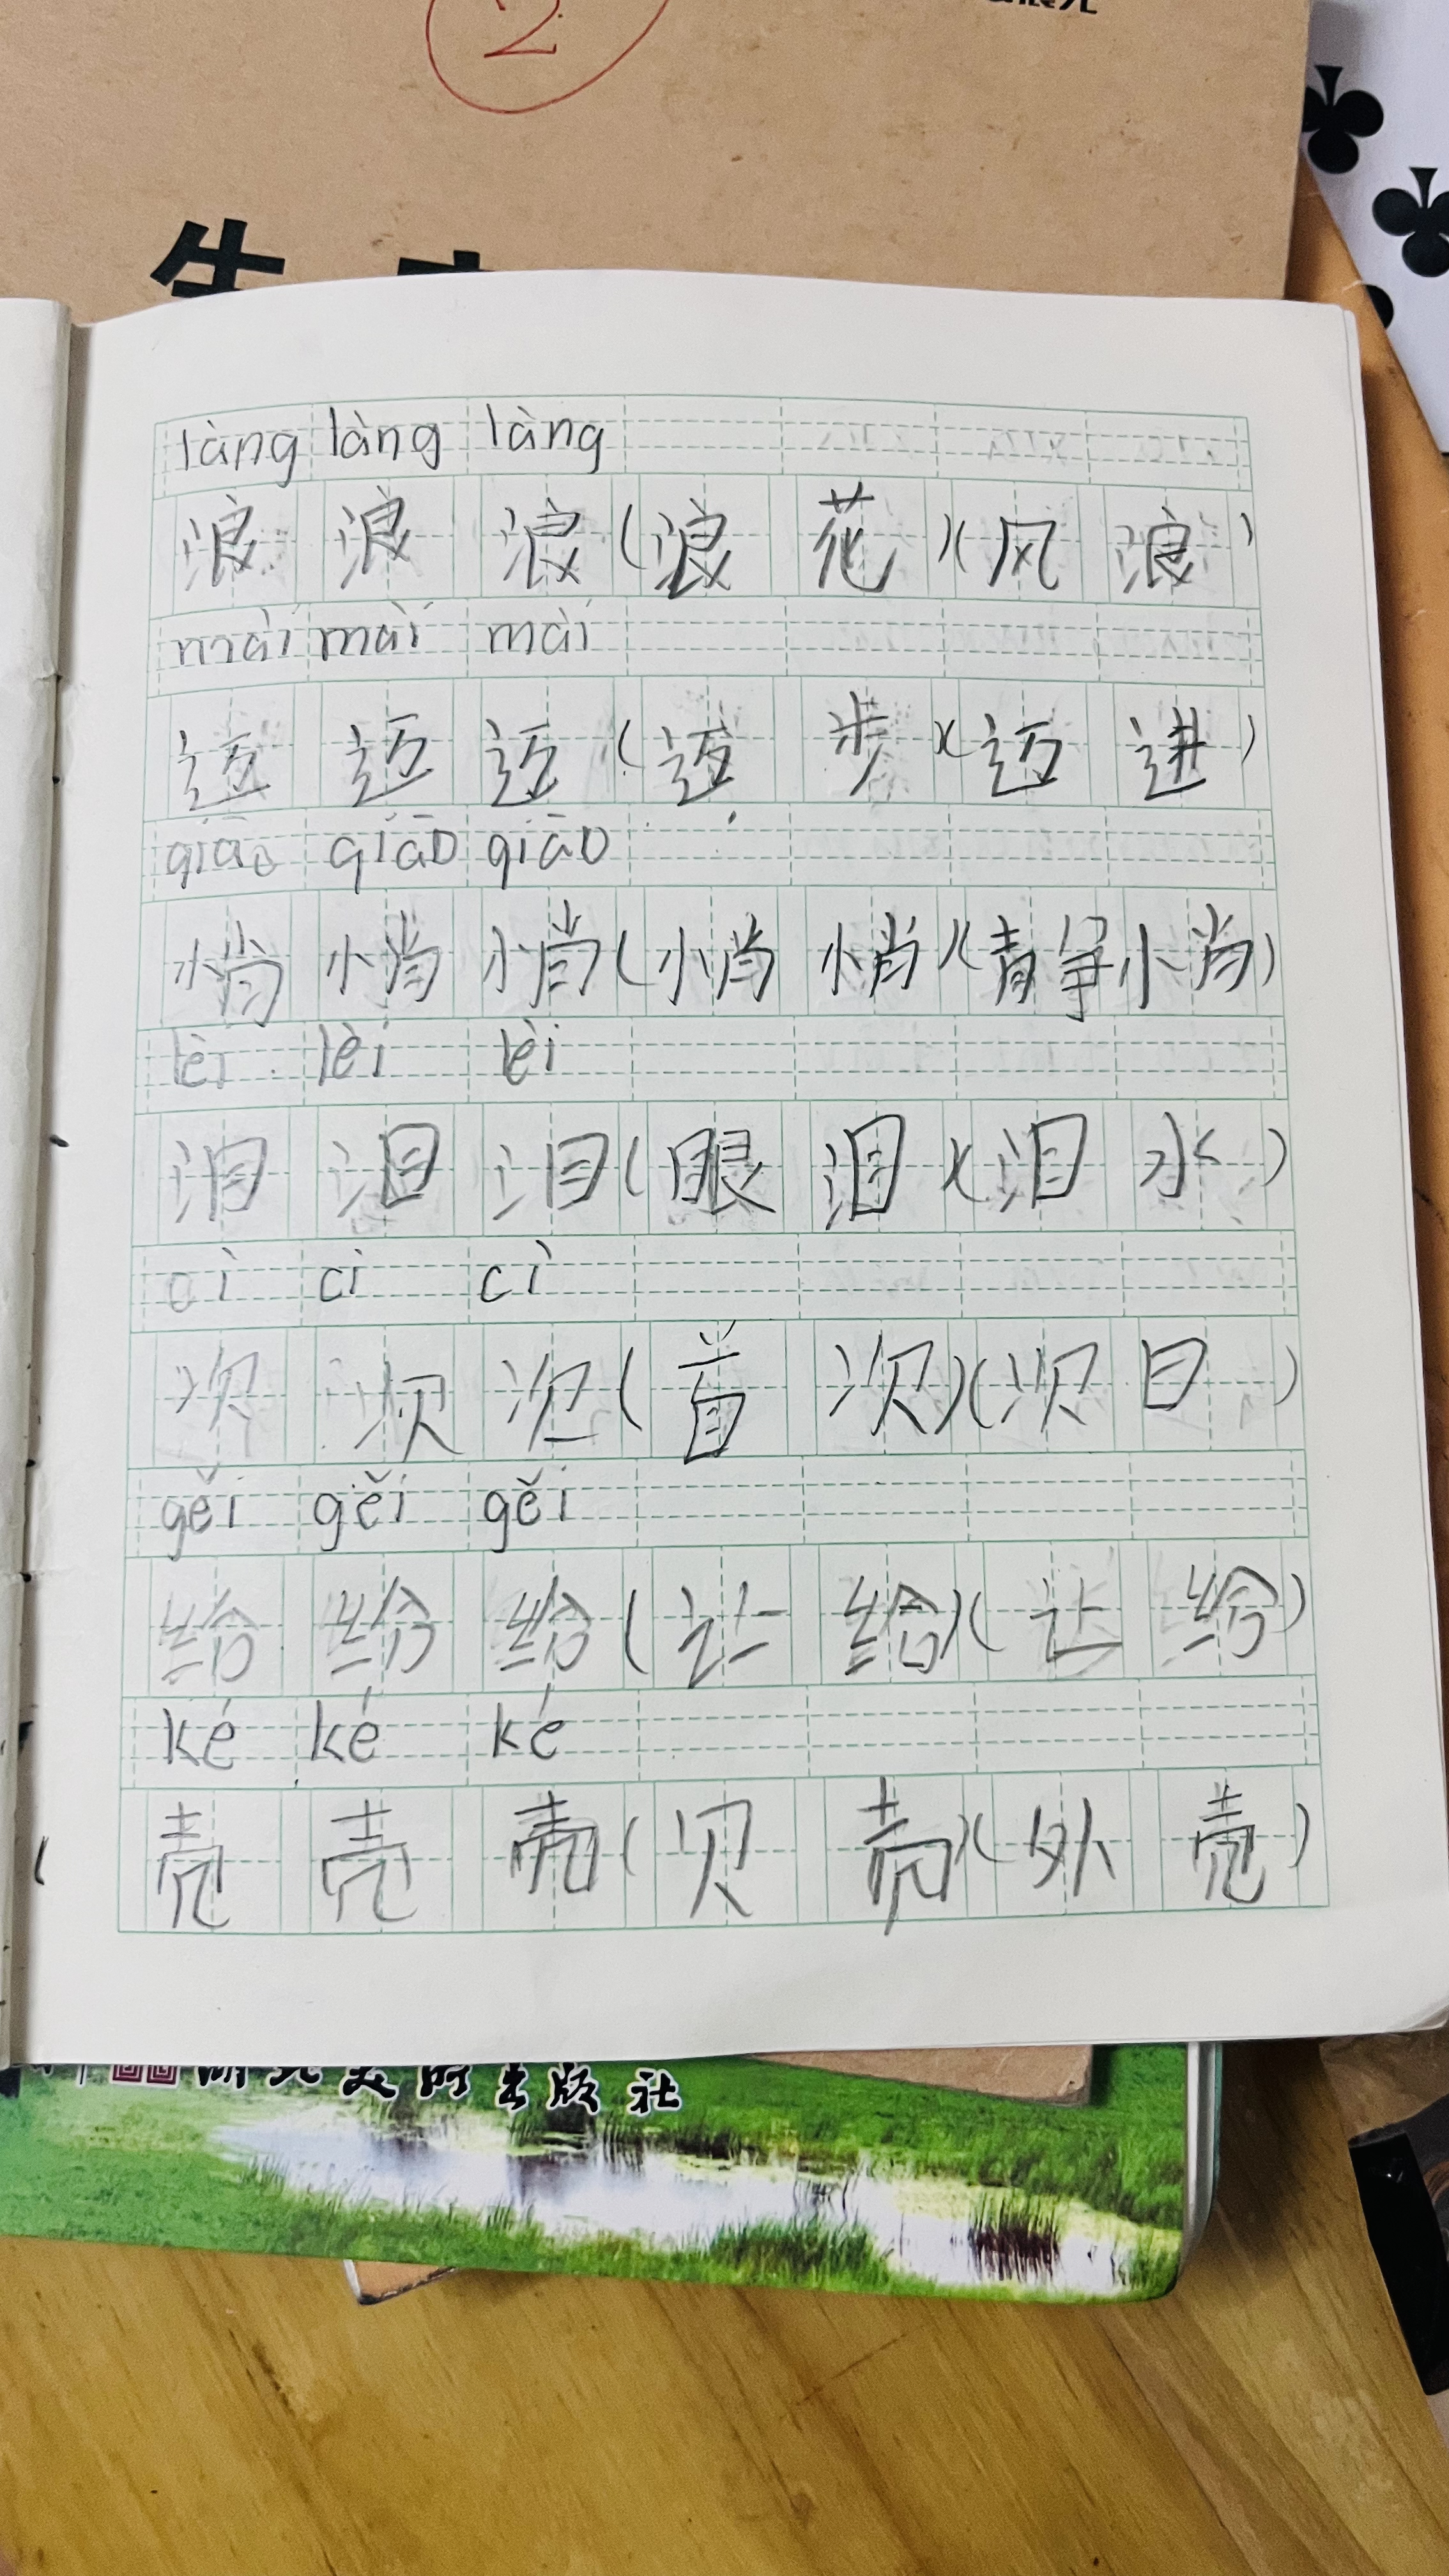 2
làng làng làng
浪 浪 浪 (浪 花)(风 浪)
mài mài mài
迈 迈 迈 (迈 步)(迈 进)
qiāo qiāo qiāo
悄 悄 悄 (悄 悄)(静 悄)
lèi lèi lèi
泪 泪 泪 (眼 泪)(泪 水)
cì cì cì
次 次 次 (首 次)(次 日)
gěi gěi gěi
给 给 给 (让 给)(让 给)
ké ké ké
壳 壳 壳 (贝 壳)(外 壳)
湖北美术出版社